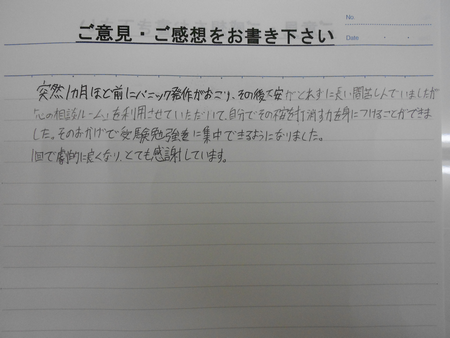 No.
ご意見・ご感想をお書き下さい
Date ・ ・
突然1カ月ほど前にパニック発作がおこり、その後不安がとれずに長い間苦しんでいましたが
「心の相談ルーム」を利用させていただいて、自分でその不安を打ち消す力を身につけることができま
した。そのおかげで受験勉強に集中できるようになりました。
1回で劇的に良くなり、とても感謝しています。